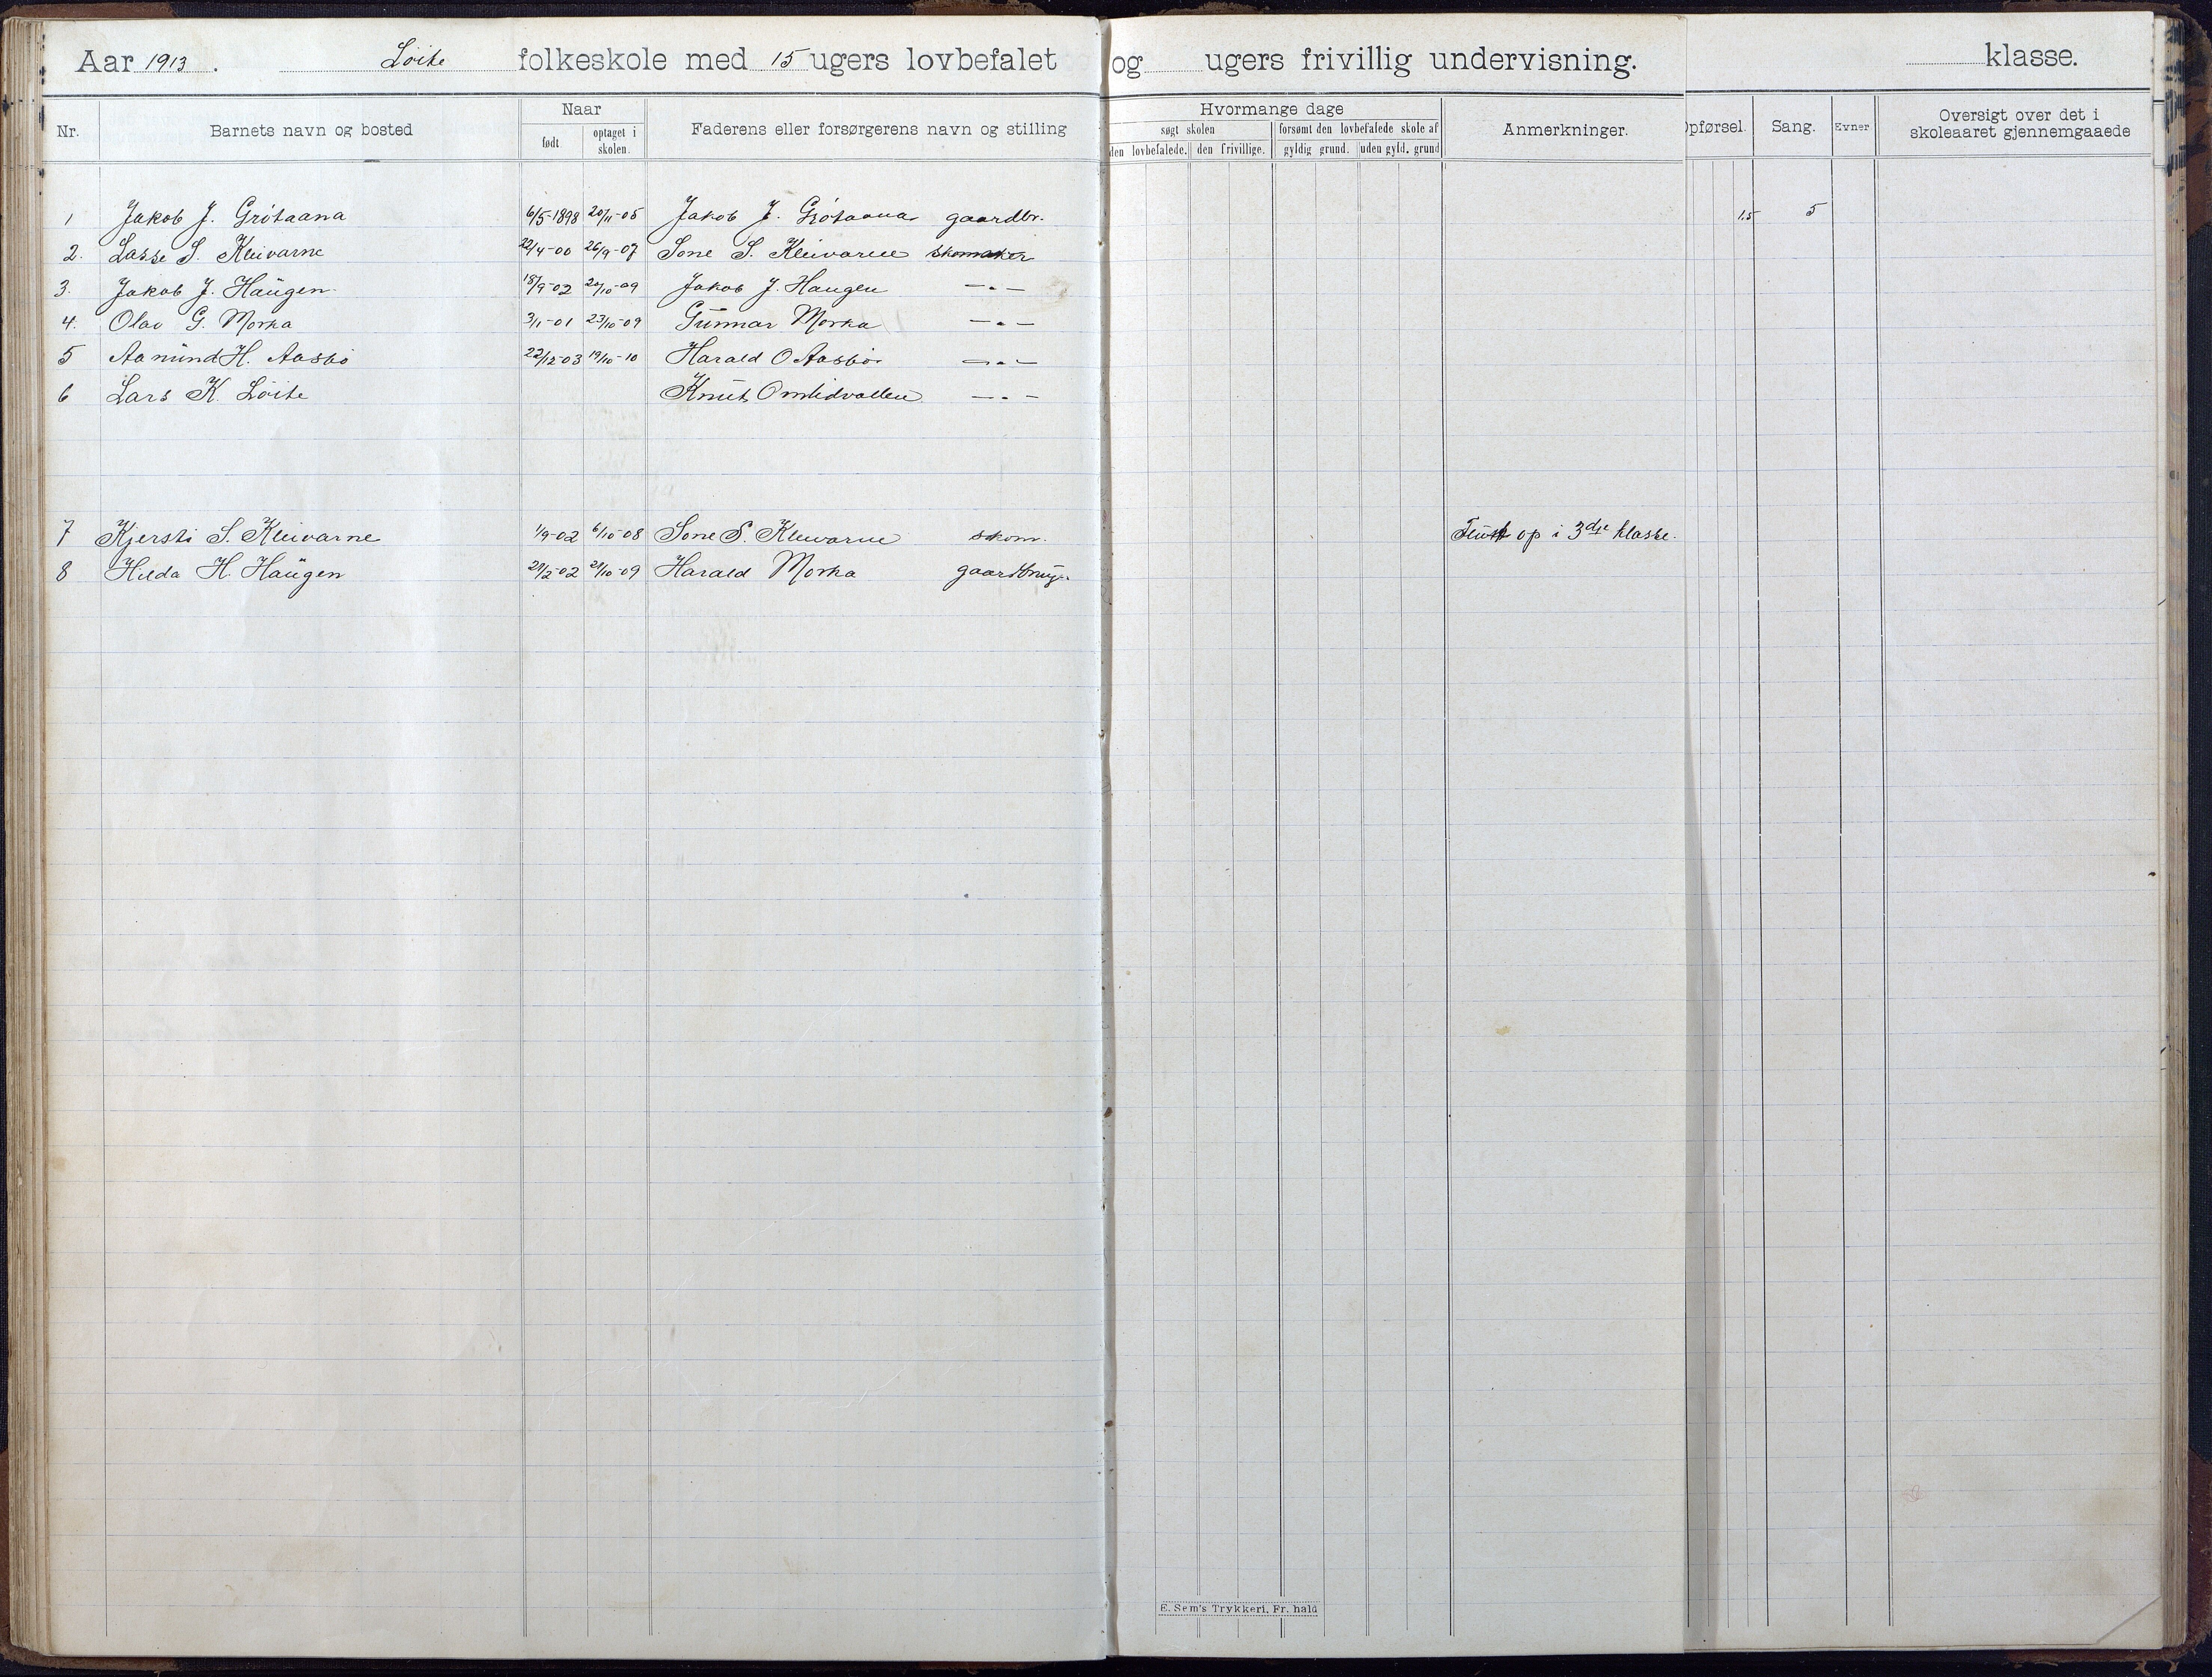 Aar 1913. Löite folkeskole med 15 ugers lovbefalet og ugers frivillig undervisning. klasse.
Nr. Barnets navn og bosted Naar Faderens eller forsørgerens navn og stilling Hvormange dage Anmerkninger. Opførsel. Sang. Evner Oversigt over det i skoleaaret gjennemgaaede
født optaget i skolen. søgt skolen forsømt den lovbefalede skole af
den lovbefalede. den frivillige. gyldig grund. uden gyld. grund
1 Jakob J. Grötaana 6/5-1898 20/11-05 Jakob J. Grötaana gaardbr. 1,5 5
2. Lasse S. Kleivarne 22/4-00 26/9-07 Sone S. Kleivarne skomaker
3. Jakob J. Haügen 18/9-02 20/10-09 Jakob J. Haugen —„—
4. Olav G. Morka 3/1-01 23/10-09 Günnar Morka —„—
5 Aamünd H. Aasbö 22/12-03 19/10-10 Harald O Aasbö —„—
6 Lars K. Löite Knut Omlidvollen —„—
7 Kjersti S. Kleivarne 1/9-02 6/10-08 Sone S. Kleivarne skom. op i 3dje klasse.
8 Hilda H. Haügen 21/2-02 21/10-09 Harald Morka
E. Sem's Trykkeri, Fr. hald